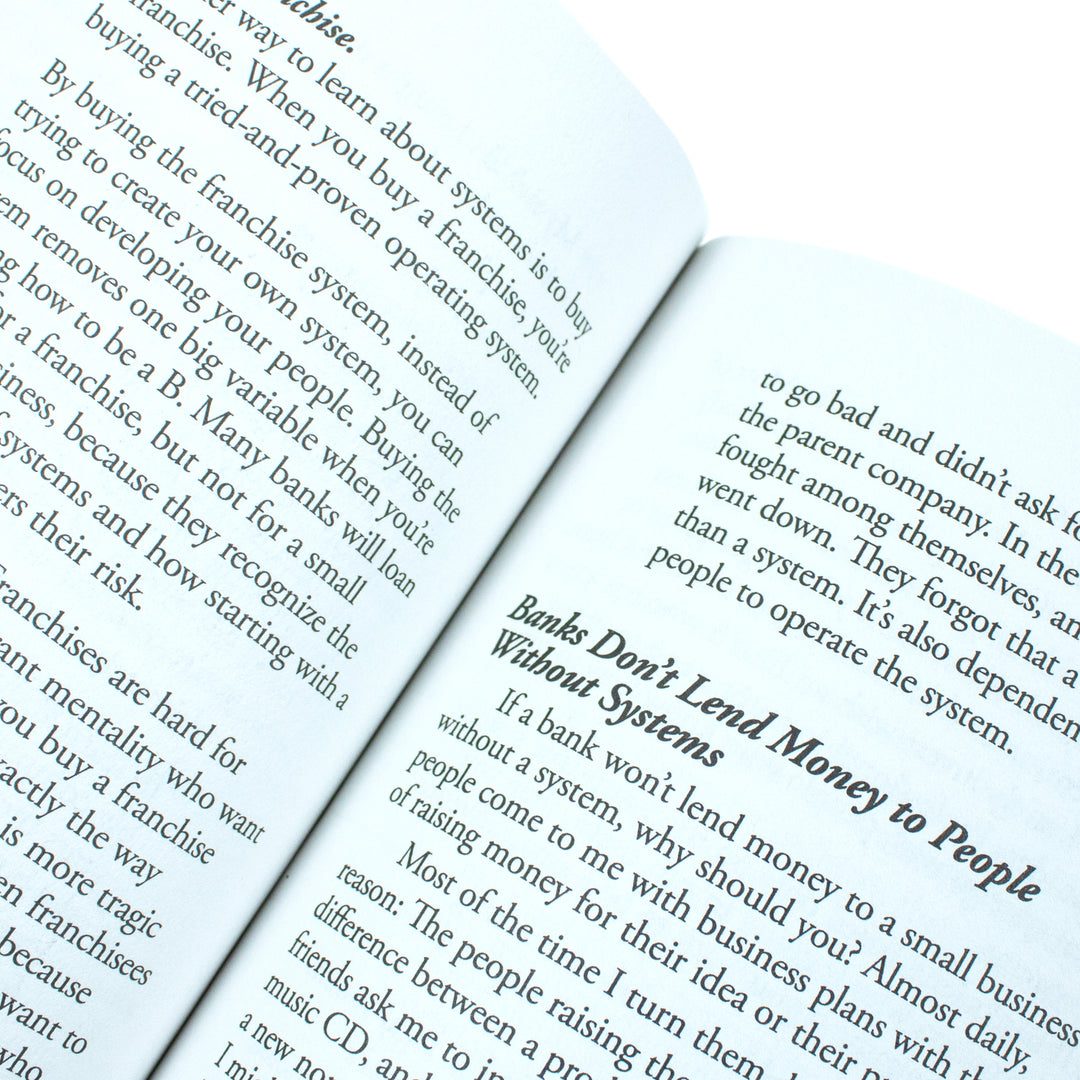 way to learn about systems is to buy
franchise. When you buy a franchise, you're
buying a tried-and-proven operating system.
By buying the franchise system, instead of
trying to create your own system, you can
focus on developing your people. Buying the
removes one big variable when you're
how to be a B. Many banks will loan
a franchise, but not for a small
because they recognize the
systems and how starting with a
their risk.
franchises are hard for
mentality who want
you buy a franchise
exactly the way
is more tragic
franchisees
because
want to
who
to go bad and didn't ask
the parent company. In the
fought among themselves,
went down. They forgot that a
than a system. It's also
people to operate the system.
Banks Don't Lend Money to People
Without Systems
If a bank won't lend money to a small business
without a system, why should you? Almost daily,
people come to me with business plans with
of raising money for their idea or their
Most of the time I turn them
reason: The people raising
difference between a
friends ask me to
music CD, and
a new
I